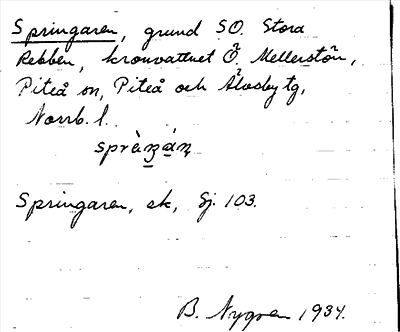 Springaren, grund SO. Stora
Rebben, kronvattnet Ö. Mellerstön,
Piteå sn, Piteå och Älvsby tg,
Norrb. l.
Springaren, ek, Sj. 103.
B. Nygren 1934.